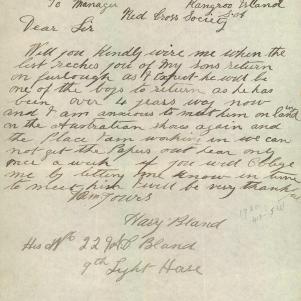 To Manager Kangroo Island
Red Cross Society
Dear Sir
Will you kindly wire me when the
list reches you of My sons return
on furlough as I Expect he will be
one of the boys to return as he has
been over 4 years way now
and I am anxious to meet him on landing
on the Australian shoes again and
the place I am working in we can
not get the Papers out hear only
once a week if you will Oblege
me by letting me know in time
to meet him I will be very thankful
I am Yours
Mary Bland
His No 22 Bland
9th Light Horse